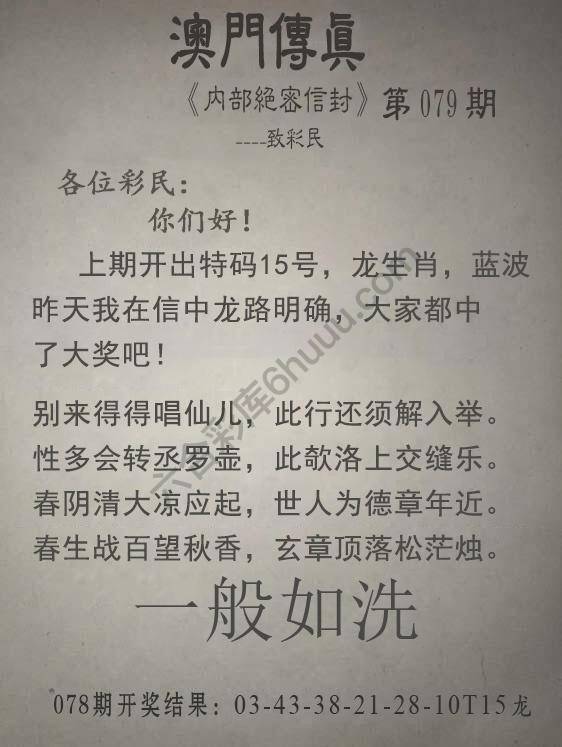 澳門傳眞
《内部絕密信封》第079期
----致彩民
各位彩民：
你们好！
上期开出特码15号，龙生肖，蓝波
昨天我在信中龙路明确，大家都中
了大奖吧！
别来得得唱仙儿，此行还须解入举。
性多会转丞罗壶，此欹洛上交缝乐。
春阴清大凉应起，世人为德章年近。
春生战百望秋香，玄章顶落松茫烛。
一般如洗
078期开奖结果：03-43-38-21-28-10T15龙
六合彩库6huuu.com